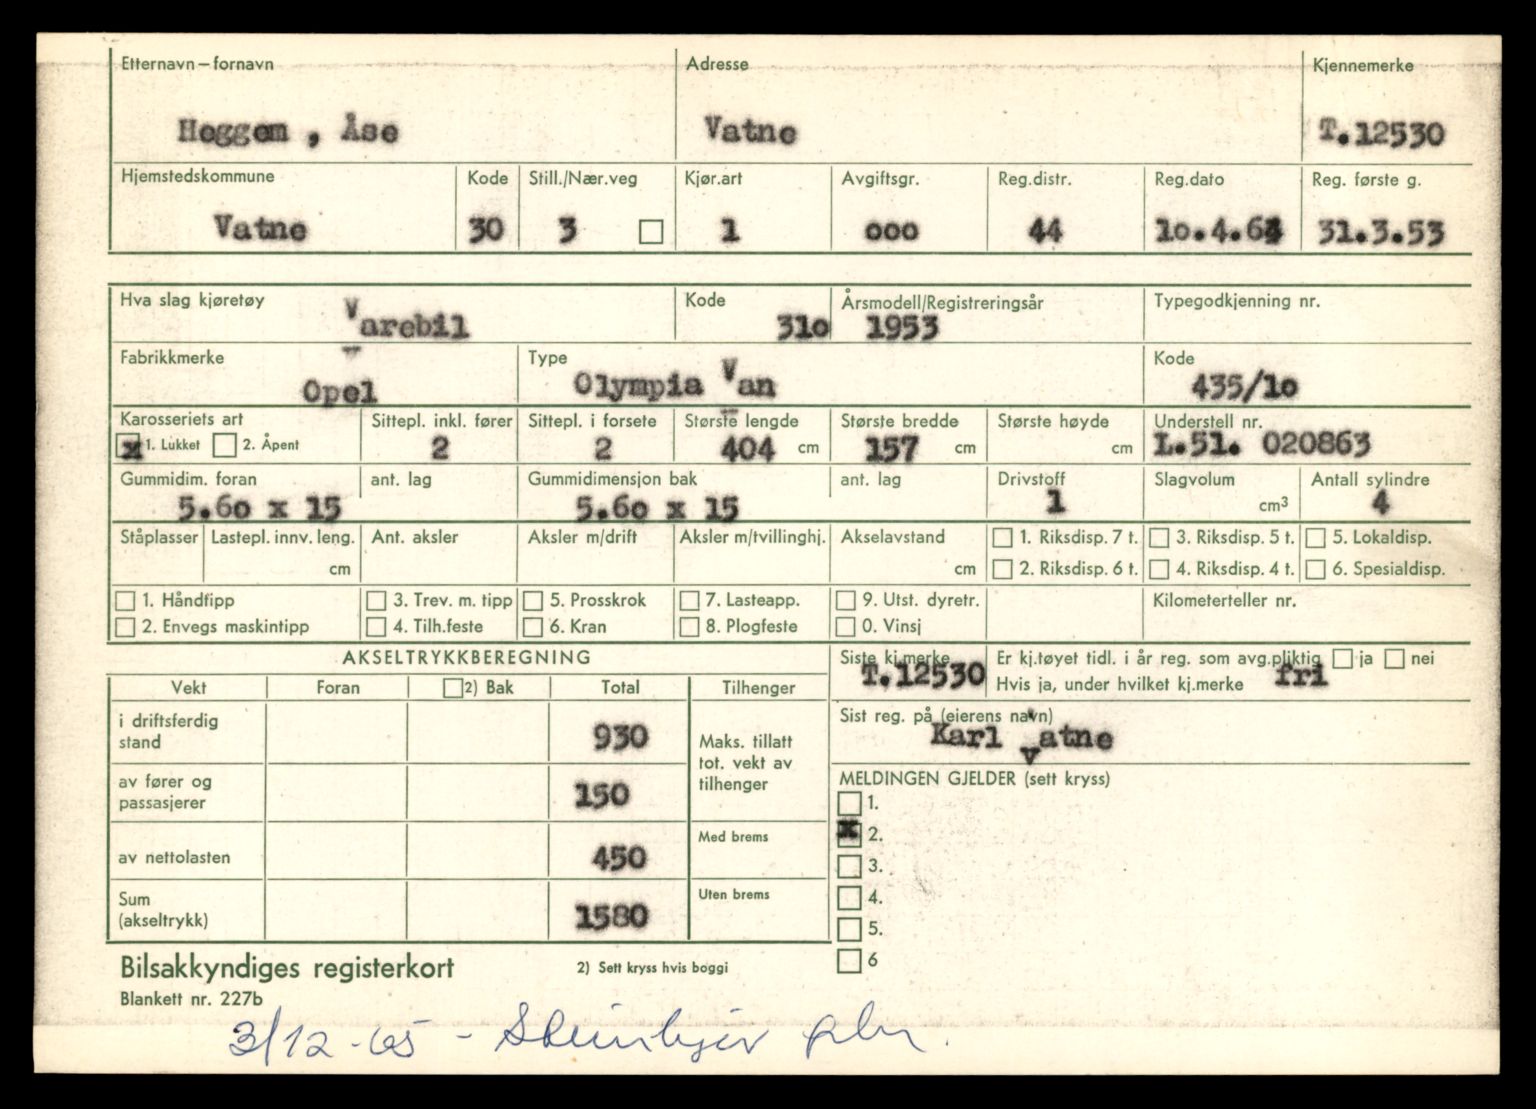 Etternavn – fornavn Adresse Kjennemerke
Heggem , Åse Vatne T.12530
Hjemstedskommune Kode Still./Nær.veg Kjør.art Avgiftsgr. Reg.distr. Reg.dato Reg. første g.
Vatne 30 3 1 ooo 44 31.3.53
Hva slag kjøretøy Kode Årsmodell/Registreringsår Typegodkjenning nr.
Varebil 31o 1953
Fabrikkmerke Type Kode
Opel Olympia Van 435/1o
Karosseriets art Sittepl. inkl. fører Sittepl. i forsete Største lengde Største bredde Største høyde Understell nr.
x 1. Lukket 2. Åpent 2 2 404 cm 157 cm cm L.51. 020863
Gummidim. foran ant. lag Gummidimensjon bak ant. lag Drivstoff Slagvolum Antall sylindre
5.6o x 15 5.6o x 15 1 cm3 4
Ståplasser Lastepl. innv. leng. Ant. aksler Aksler m/drift Aksler m/tvillinghj. Akselavstand 1. Riksdisp. 7 t. 3. Riksdisp. 5 t. 5. Lokaldisp.
cm cm 2. Riksdisp. 6 t. 4. Riksdisp. 4 t. 6. Spesialdisp.
1. Håndtipp 3. Trev. m. tipp 5. Prosskrok 7. Lasteapp. 9. Utst. dyretr. Kilometerteller nr.
2. Envegs maskintipp 4. Tilh.feste 6. Kran 8. Plogfeste 0. Vinsj
AKSELTRYKKBEREGNING Siste kj.merke Er kj.tøyet tidl. i år reg. som avg.pliktig ja nei
T.12530 Hvis ja, under hvilket kj.merke fri
Vekt Foran 2) Bak Total Tilhenger
i driftsferdig stand 930
Maks. tillatt tot. vekt av tilhenger
Sist reg. på (eierens navn)
Karl Vatne
av fører og passasjerer 150
MELDINGEN GJELDER (sett kryss)
1.
Med brems x 2.
av nettolasten 450 3.
Uten brems 4.
Sum (akseltrykk) 1580 5.
6
Bilsakkyndiges registerkort 2) Sett kryss hvis boggi
Blankett nr. 227b
3/12-65 - Steinkjer